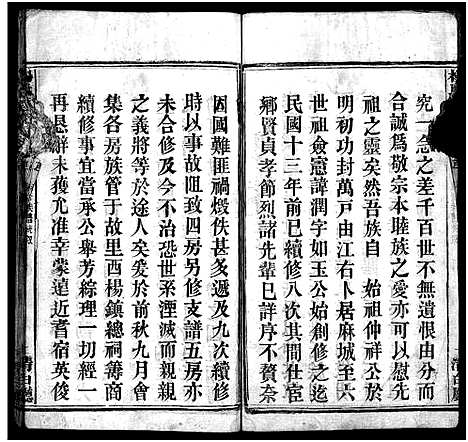 究一念之差千百世不無遺恨由分而
合誠爲敬宗本睦族之愛亦可以慰先
祖之靈矣然吾族自 始祖仲祥公於
明初功封萬戸由江右卜居麻城至六
世祖僉憲諱潤字如玉公始創修之迄
民國十三年前已續修八次其間宦宰
鄉賢貞孝節烈諸先輩已詳前贊奈
因國難匪禍燬佚甚多遞及九次續修
時以事故阻致四房另修支譜五房亦
未合修及今不治恐世系湮滅而親親
之義將等於途人矣爰於前秋九月會
集各房族管于故里西楊鎮總祠籌商
續修事宜當承公舉芳綜理一切經一
再懇辭未獲允准幸蒙遠近耆宿英俊
清白廳